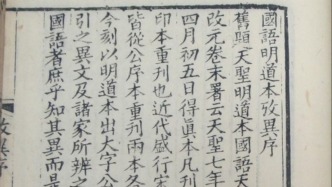 國語明道本攷異序
舊題天聖明道本國語天
改元卷末署云天聖七年
四月初五日得眞本凡刋
印本重刋也近代盛行宋
皆從公序本重刋兩本各
今刻以明道本出大字公
引之異文及諸家所辨之
國語者庶乎知其異而是
攷異序